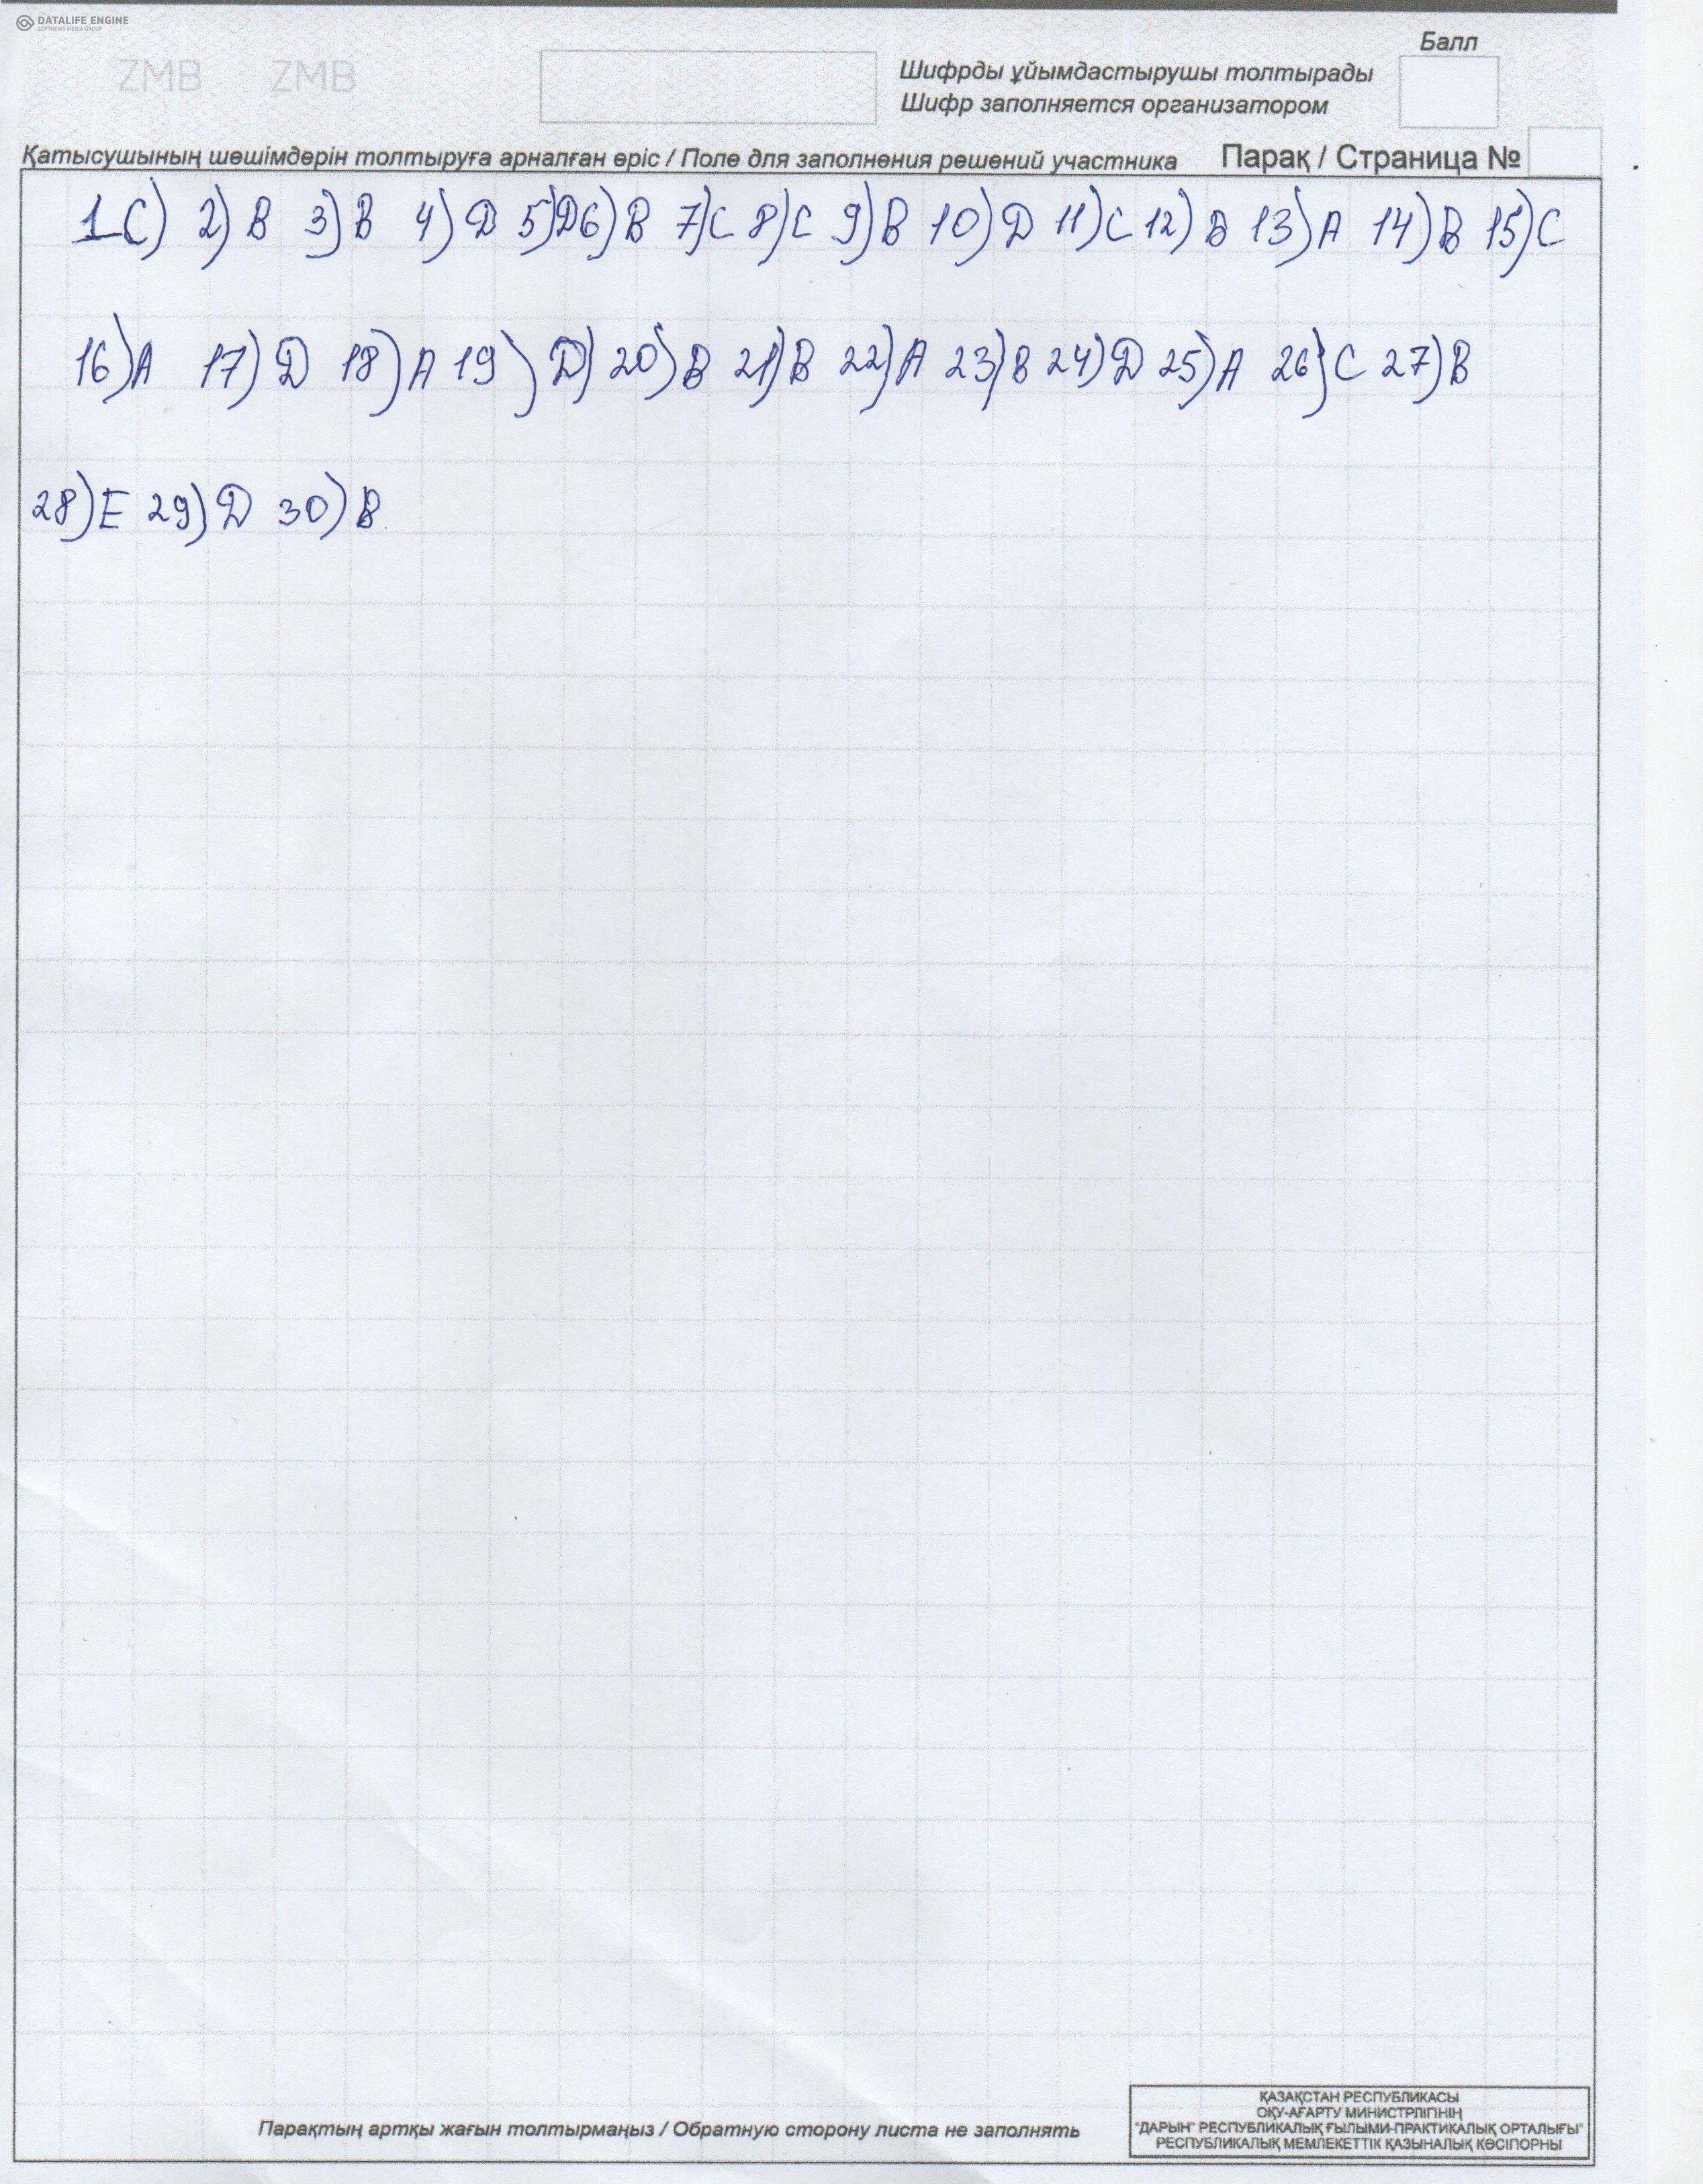 DATALIFE ENGINE
SOFTNEWS MEDIA GROUP
ZMB ZMB
Балл
Шифрды ұйымдастырушы толтырады
Шифр заполняется организатором
Қатысушының шешімдерін толтыруға арналған өріс / Поле для заполнения решений участника Парақ / Страница №
1 C) 2) B 3) B 4) D 5) D 6) B 7) C 8) C 9) B 10) D 11) C 12) B 13) A 14) B 15) C
16) A 17) D 18) A 19) D) 20) B 21) B 22) A 23) B 24) D 25) A 26) C 27) B
28) E 29) D 30) B
Парақтың артқы жағын толтырмаңыз / Обратную сторону листа не заполнять
ҚАЗАҚСТАН РЕСПУБЛИКАСЫ
ОҚУ-АҒАРТУ МИНИСТРЛІГІНІҢ
"ДАРЫН" РЕСПУБЛИКАЛЫҚ ҒЫЛЫМИ-ПРАКТИКАЛЫҚ ОРТАЛЫҒЫ"
РЕСПУБЛИКАЛЫҚ МЕМЛЕКЕТТІК ҚАЗЫНАЛЫҚ КӘСІПОРНЫ